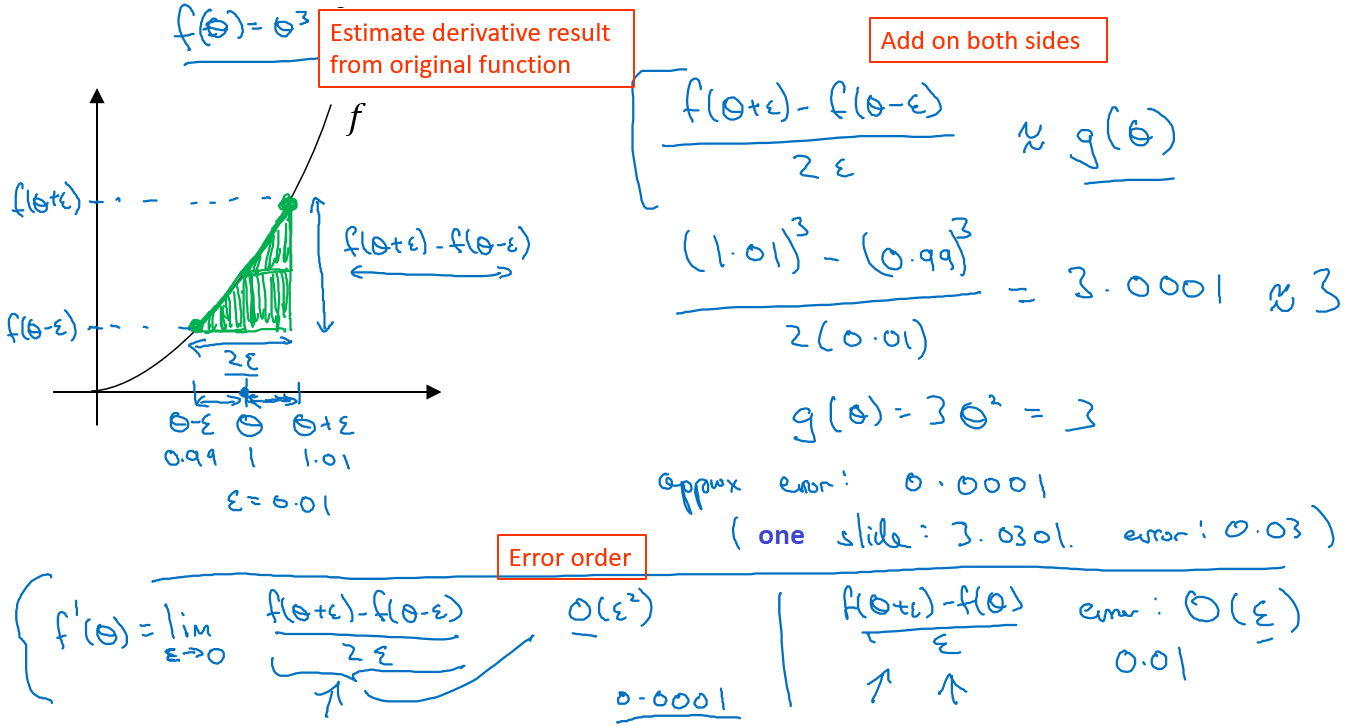 f(θ) = θ³
Estimate derivative result
from original function
Add on both sides
f
f(θ+ε)
f(θ-ε)
f(θ+ε) - f(θ-ε)
2ε
θ-ε θ θ+ε
0.99 1 1.01
ε = 0.01
f(θ+ε) - f(θ-ε)
2ε
≈ g(θ)
(1.01)³ - (0.99)³
2(0.01)
= 3.0001 ≈ 3
g(θ) = 3θ² = 3
approx error: 0.0001
(one slide: 3.0301. error: 0.03)
Error order
f'(θ) = lim
ε→0
f(θ+ε) - f(θ-ε)
2ε
O(ε²)
0.0001
f(θ+ε) - f(θ)
ε
error: O(ε)
0.01